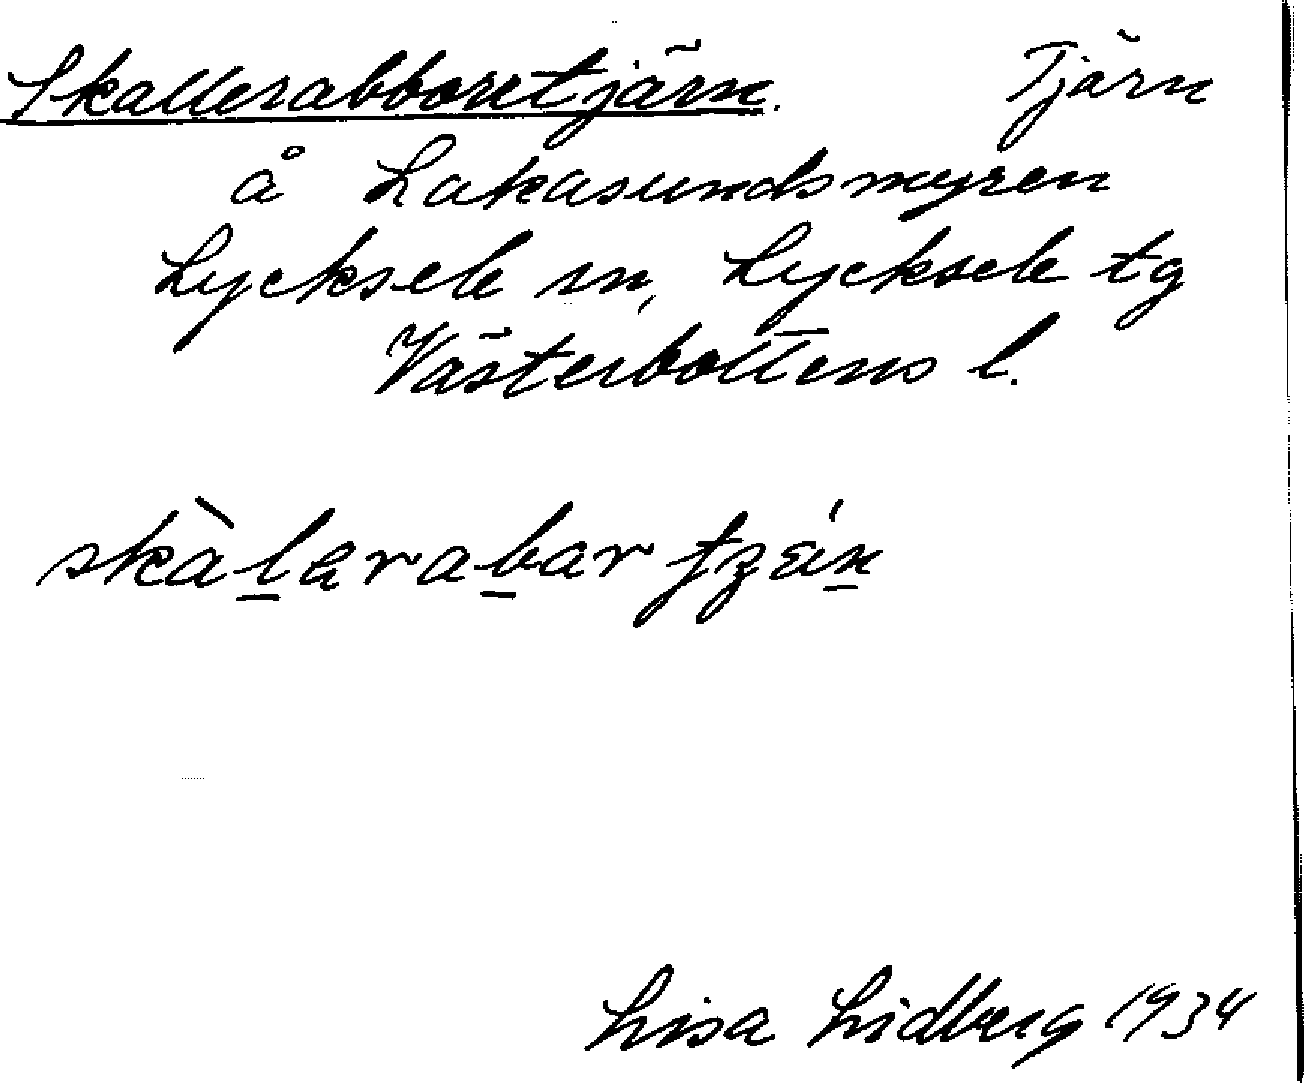 Skallerabboretjärn. Tjärn
å Lakasundsmyren
Lycksele sn, Lycksele tg
Västerbottens l.
Lisa Lidberg 1934